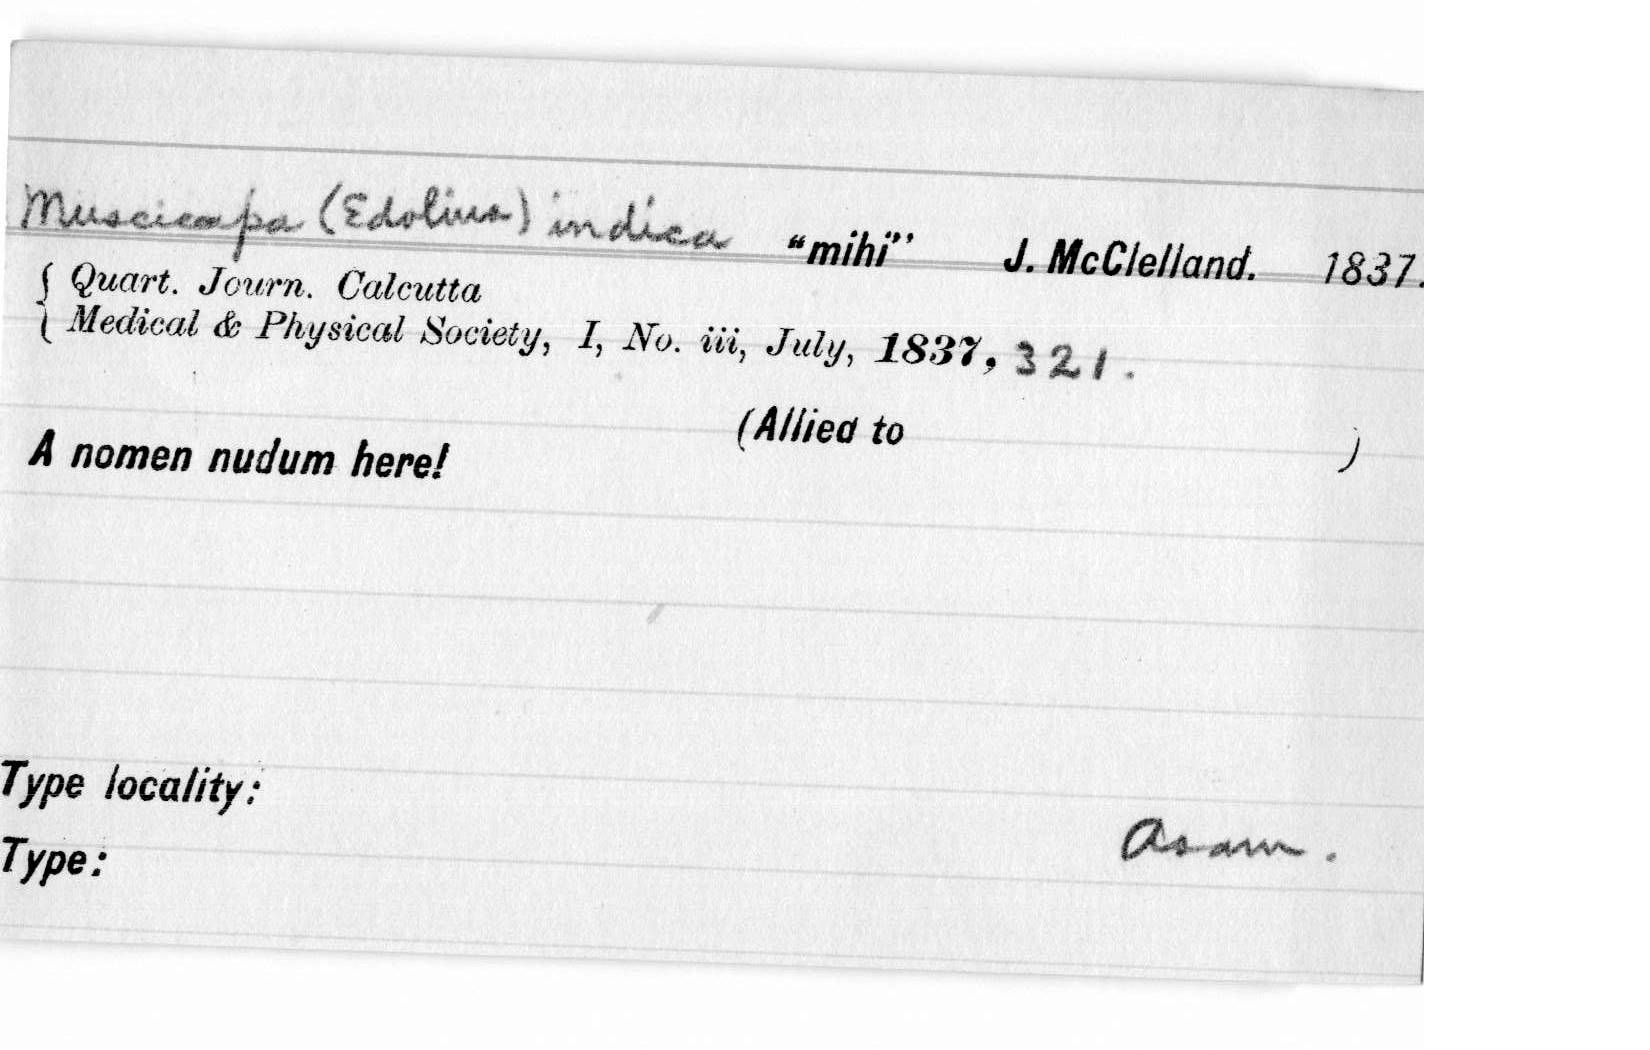 Muscicapa (Edolius) indica "mihi" J. McClelland. 1837.
{ Quart. Journ. Calcutta
{ Medical & Physical Society, I, No. iii, July, 1837, 321.
(Allied to )
A nomen nudum here!
Type locality:
Asam.
Type: